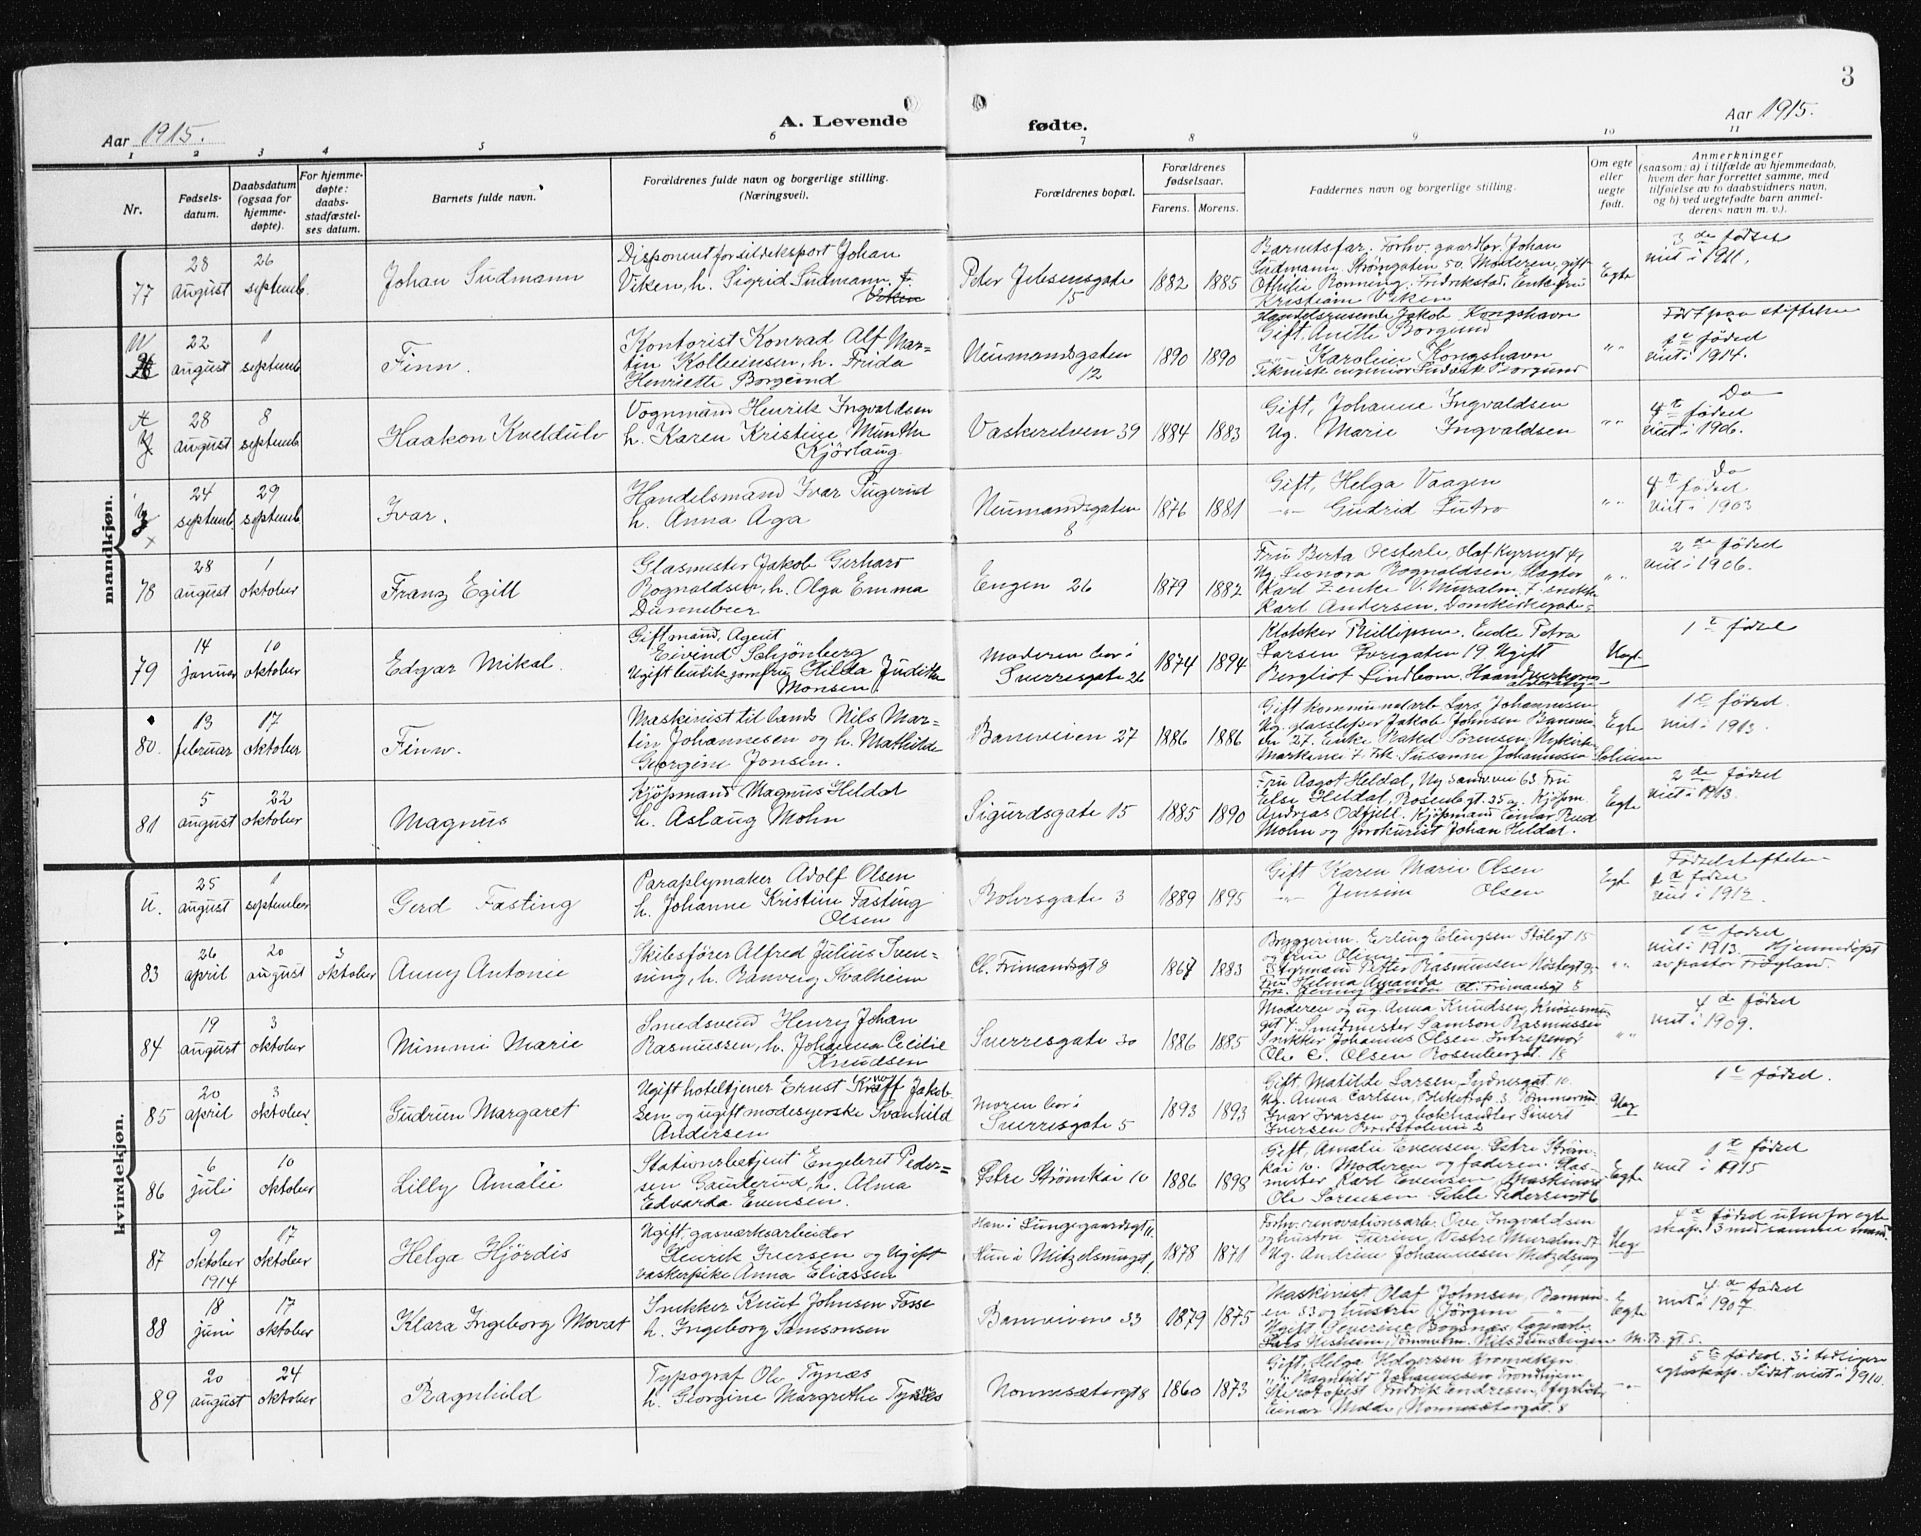 3
Aar 1915.
A. Levende
fødte.
Aar 1915.
1 2 3 4 5 6 7 8 9 10 11
Nr.
Fødsels-
datum.
Daabsdatum
(ogsaa for
hjemme-
døpte).
For hjemme-
døpte:
daabs-
stadfæstel-
ses datum.
Barnets fulde navn.
Forældrenes fulde navn og borgerlige stilling.
(Næringsvei).
Forældrenes bopæl.
Forældrenes
fødselsaar.
Farens. Morens.
Faddernes navn og borgerlige stilling.
Om egte
eller
uegte
født.
Anmerkninger
(saasom: a) i tilfælde av hjemmedaab,
hvem der har forrettet samme, med
tilføielse av to daabsvidners navn,
og b) ved uegtefødte barn anmel-
derens navn m. v.).
mandkjøn.
77
28
august
26
septemb.
Johan Sudmann
Disponent for sildeksport Johan
Viken, h. Sigrid Sudmann
Viken
Peter Jebsensgate
15
1882 1885
Barnetsfar. Forhv. gaardbr. Johan
Sudmann. Strömgaten 50. Moderen, gift
Othilie Rönning. Fredrikstad. Enkefru
Kristiane Viken
Egte
3de fødsel
sidst i 1911.
22
august
1
septemb
Finn.
Kontorist Konrad Alf Mar-
tin Kolbeinsen, h. Frida
Henriette Borgund
Neumannsgaten
12
1890 1890
Handelsreisende Jakob Kongshavn
Gift. Anethe Borgund
" Karoline Kongshavn
Tekniske ingeniør Ludvik Borgund
" "
Født paa stiftelsen
2de fødsel
sidst i 1914.
28
august
8
septemb
Haakon Kveldulv
Vognmand Henrik Ingvaldsen
h. Karen Kristine Munthe
Kjörlaug
Vaskerelven 39
1884 1883
Gift, Johanne Ingvaldsen
Ug. Marie Ingvaldsen
" "
Do
4t fødsel
sidst i 1906.
24
septemb.
29
septemb.
Ivar.
Handelsmand Ivar
h. Anna Aga
Neumannsgaten
8
1876 1881
Gift, Helga Vaagen
-"- Gudrid Lutro
" "
Do
4t fødsel
sidst i 1903
78
28
august
1
oktober
Franz Egill
Glasmester Jakob Gerhard
Rognaldsen, h. Olga Emma
Dannebeer
Engen 26
1879 1882
Fru Berta Oesterle, Olaf Kyrresgt 49
Ug. Leonora Rognaldsen, Slagter
Karl Zenke V. Muralm. 7. snekker
Karl Andersen. Domkirkegate 5
" "
2de fødsel
sidst i 1906.
79
14
januar
10
oktober
Edgar Mikal.
Gift mand, Agent
Eivind Schjönberg
Ugift butikjomfru Hilda Judithe
Monsen
Moderen bor i
Sverresgate 26
1874 1894
Klokker Phillipsen. Enke Petra
Larsen Ivregaten 19. Ugift
Bergliot Lindbom, Haandverkerns
Uegt
1te fødsel
80.
13
februar
17
oktober
Finn.
Maskinist til lands Nils Mar-
tin Johannesen og h. Mathilde
Georgine Jonsen.
Baneveien 27
1886 1886
Gift kommunalarb. Lars Johannesen
Ug. glassliper Jakob Johnsen Banevei
en 27. Enke Rakel Sørensen, Nykirke
Markanei 7. Frk. Susanne Johannesen
Egte
1te fødsel.
sidst i 1913.
81
5
august
22
oktober
Magnus
Kjøpmand Magnus Heldal
h. Aslaug Mohn
Sigurdsgate 15
1885 1890
Fru Aagot Heldal, Ny Sandsvei 63. Fru
Else Heldal, Rosenbgt. 35 a, Kjøpm.
Andreas Odfjell. Kjøpmand Einar Rud
Mohn og prokurist Johan Heldal.
Egte
2de fødsel
sidst i 1913.
kvindekjøn.
u.
25
august
1
september
Gerd Fasting
Paraplymaker Adolf Olsen
h. Johanne Kristine Fasting
Olsen
Bohrsgate 3
1889 1895
Gift Karen Marie Olsen
-"- Jensine Olsen
Egte
Fødselstiftelsen
2de fødsel
sidst i 1912.
83
26
april
20
august
3
oktober
Anny Antonie
Skibsfører Alfred Julius Sven-
ning, h. Ranveig Svalheim
Cl. Frimandsgt 8
1867 1883
Bryggerim. Erling Elingsen Stølegt 15
og fru Oline -"-
Styrmand Petter Rasmussen Nöstegt 9.
Fru Helma Amanda
Frk. Jenny Jensen Cl. Frimansgt 8
" "
1te fødsel
sidst i 1913. Hjemmedøpt
av pastor Frøyland.
84
19
august
3
oktober
Mimmi Marie
Smedsvend Henry Johan
Rasmussen, h. Johanna Cecilie
Knudsen
Sverresgate 30
1886 1885
Moderen og ug. Anna Knudsen, Knösesmu
get 4. Smedmester Samson Rasmussen
Snekker Johannes Olsen. Entrepenør
Ole C. Olsen Rosenbergsgt. 18
" "
4de fødsel
sidst i 1909.
85
20
april
3
oktober
Gudrun Margaret
Ugift hoteltjener Ernst Jakob-
sen og ugift modesyerske Svanhild
Andersen
Moren bor i
Sverresgate 5
1893 1893
Gift. Matilde Larsen, Sydnesgt. 10
Ug. Anna Carlsen, 3. Tömmermd.
Ivar Ivarsen og bokhandler Sivert
Iversen 2
Ueg
1te fødsel.
86
6
juli
10
oktober
Lilly Amalie
Stationsbetjent Engebret Peder-
sen Gauterud, h. Alma
Edvarda Evensen.
Östre Strömkai 10
1886 1898
Gift, Amalie Evensen, Östre Ström-
kai 10. Moderen og faderen. Glas-
mester Karl Evensen, Maskinist
Ole Sörensen Gable Pedersensgt 6
Egte
1te fødsel
sidst i 1915
87
9
oktober
1914
17
oktober
Helga Hjördis
Ugift, gasverksarbeider
Henrik Iversen og Ugift
vaskerpike Anna Eliassen
Han i Lungegaardsgt 11.
Hun i Mitzelsmuget 1
1878 1871
Forhv. renovationsarb. Ove Ingvaldsen
og hustru Severine, Vestre Muralm. 57
Ug. Andrine Johannessen Mitzelsmug
Ueg
4de fødsel utenfor egte-
skap. 3 med samme mand
88
18
juni
17
oktober
Klara Ingeborg Movat
Snekker Knut Johnsen Fosse
h. Ingeborg Samsonsen
Baneveien 33
1879 1875
Maskinist Olaf Johnsen, Banevei-
en 33 og hustru Jörgine -"-
Ugift Severine Bogsnæs, lagerarb.
Lars Nisheim, Tömmerm. Nils Tømsteigen M. B. gt. 5.
Egte
4de fødsel
sidst i 1907.
89
20
august
24
oktober
Ragnhild
Typograf Ole Tynæs
h. Georgine Margrethe Tynæs
Nonnesætergt 8
1860 1873
Gift, Helga Holgersen Kronviken
" Ragnhild Johannessen Trondhjem
Sterotopist Fredrik Endresen,
Einar Molde, Nonnesætergt. 8
-"-
5te fødsel. 3 i tidligere
egteskap. Sidst i 1910.